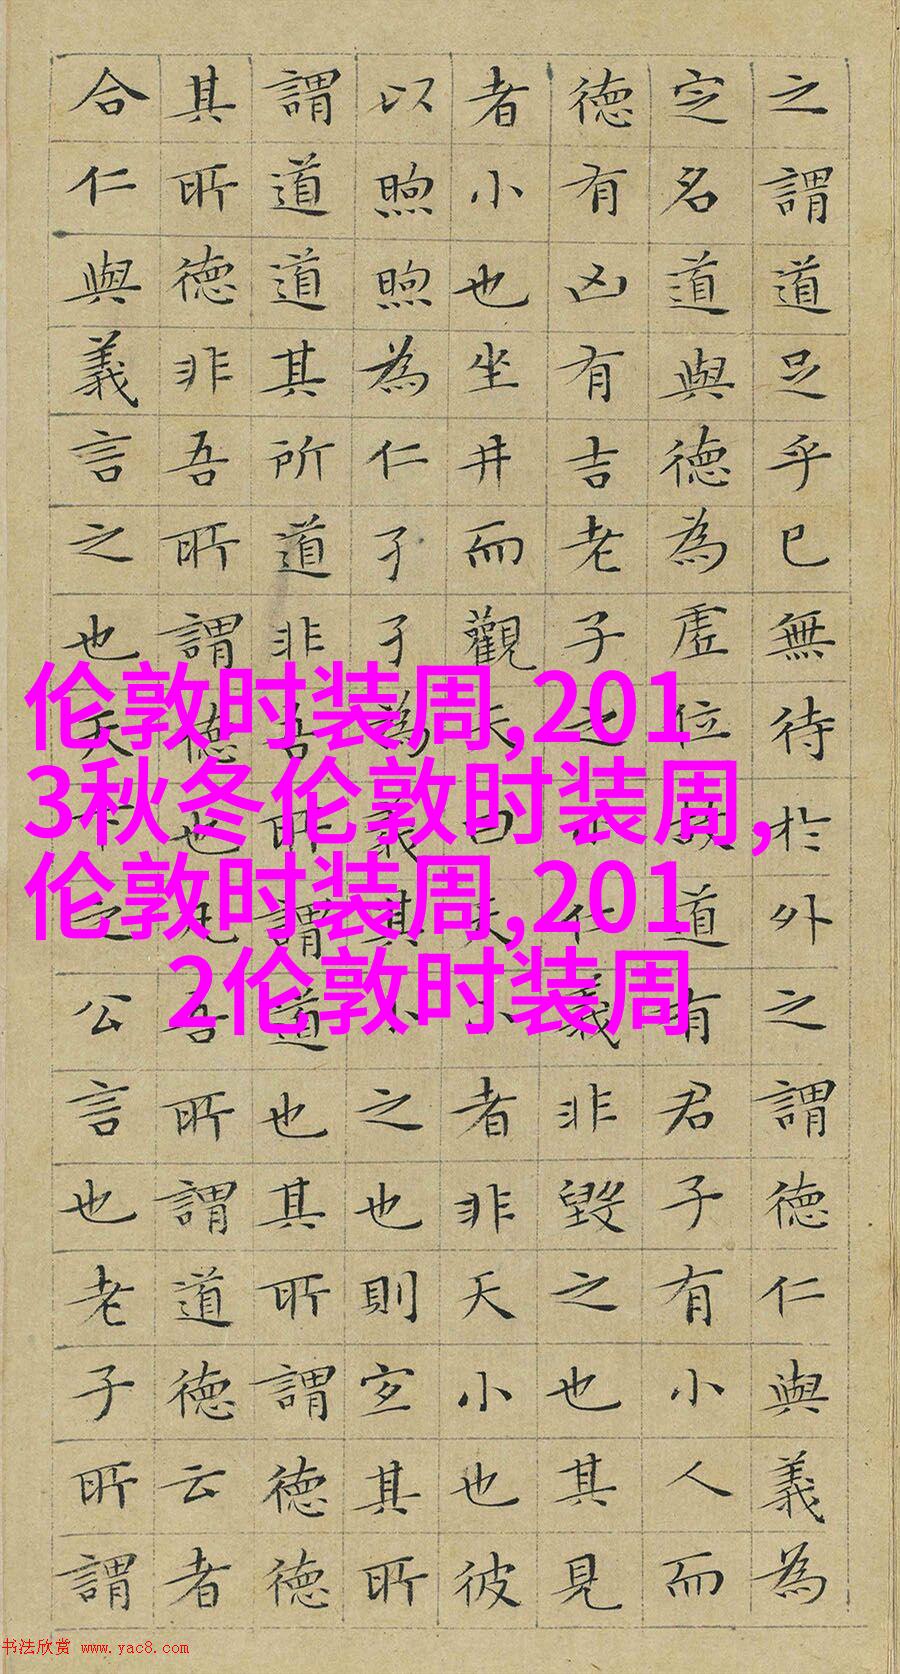 之謂道足乎已無待於外之謂德仁與義為
定名道與德為虛位故道有君子有小人而
德有凶有吉老子之小仁義非毀之也其見
者小也坐井而觀天曰天小者非天小也彼
以煦煦為仁孑孑為義其小之也則宜其所
謂道道其所道非吾所謂道也其所謂德德
其所德非吾所謂德也凡吾所謂道德云者
合仁與義言之也天下之公言也老子所謂
伦敦时装周,201
3秋冬伦敦时装周,
伦敦时装周,201
2伦敦时装周
书法欣赏 www.yac8.com